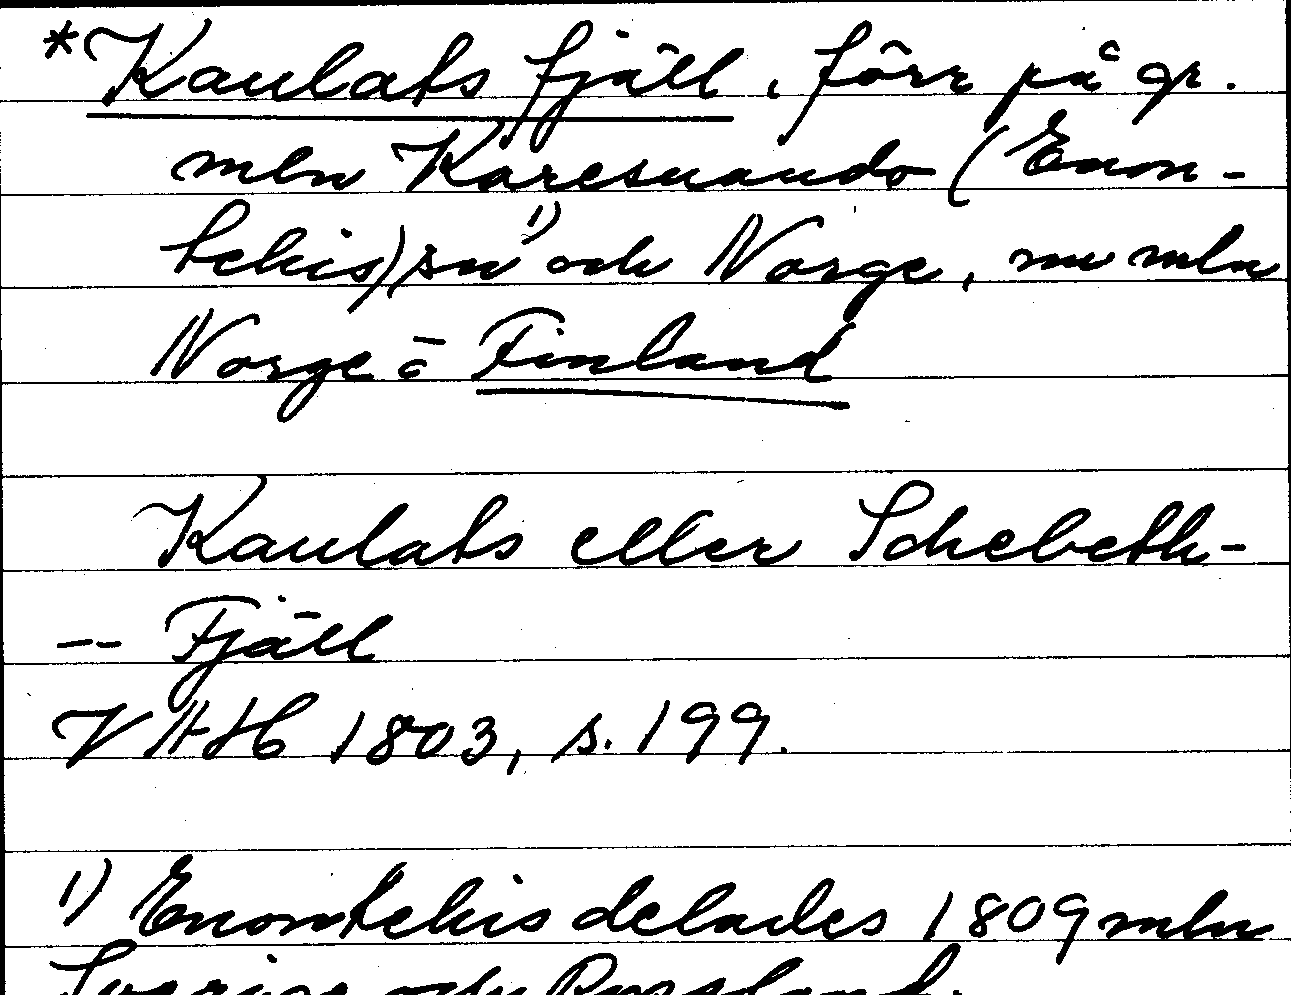 *Kaulats fjäll, förr på gr.
mln Karesuando (Enon-
tekis) sn 1) och Norge, nu mln
Norge o Finland
Kaulats eller Schebeth-
-- Fjäll
VHAH 1803, s. 199.
1) Enontekis delades 1809 mln
Sverige och Ryssland.